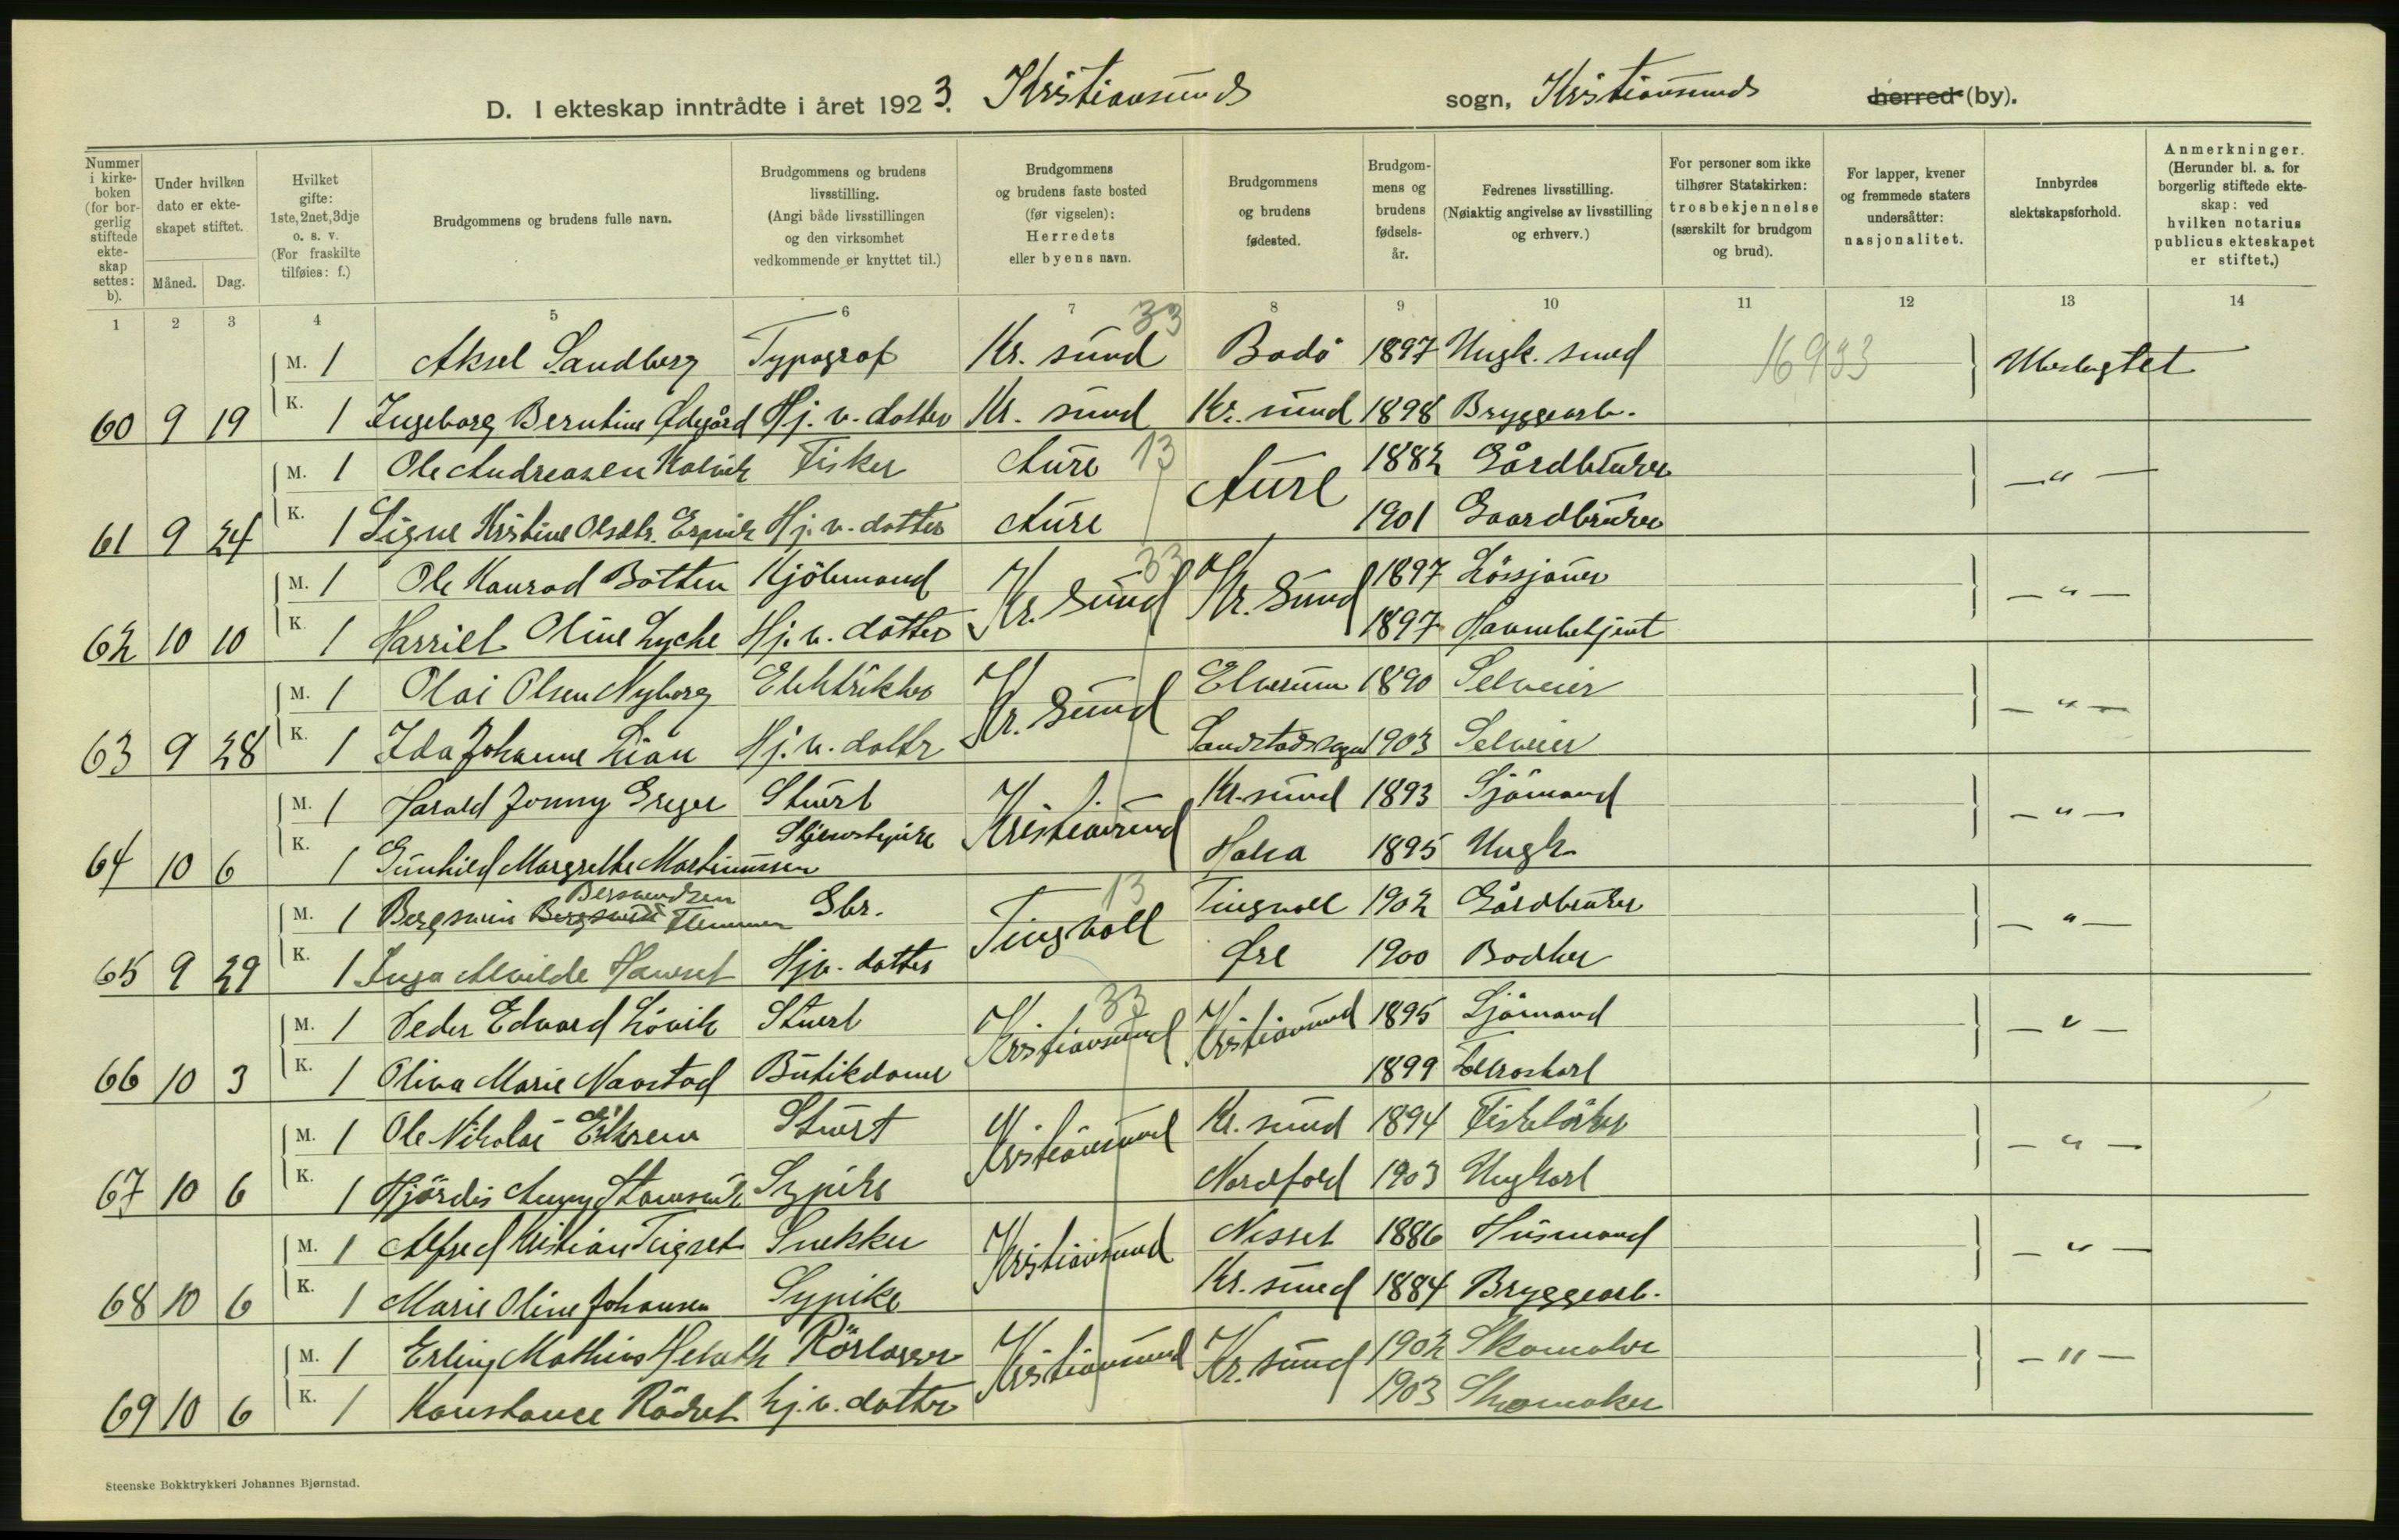 D. I ekteskap inntrådte i året 1923. Kristiansunds sogn, Kristiansunds herred (by).
Nummer i kirkeboken (for borgerlig stiftede ekteskap settes: b).
Under hvilken dato er ekteskapet stiftet.
Måned. Dag.
Hvilket gifte: 1ste, 2net, 3dje o. s. v. (For fraskilte tilføies: f.)
Brudgommens og brudens fulle navn.
Brudgommens og brudens livsstilling. (Angi både livsstillingen og den virksomhet vedkommende er knyttet til.)
Brudgommens og brudens faste bosted (før vigselen): Herredets eller byens navn.
Brudgommens og brudens fødested.
Brudgommens og brudens fødselsår.
Fedrenes livsstilling. (Nøiaktig angivelse av livsstilling og erhverv.)
For personer som ikke tilhører Statskirken: trosbekjennelse (særskilt for brudgom og brud).
For lapper, kvener og fremmede staters undersåtter: nasjonalitet.
Innbyrdes slektskapsforhold.
Anmerkninger. (Herunder bl. a. for borgerlig stiftede ekteskap: ved hvilken notarius publicus ekteskapet er stiftet.)
1 2 3 4 5 6 7 8 9 10 11 12 13 14
M. 1 Aksel Sandberg Typograf Kr. sund 33 Bodö 1897 Ungk. smed 16933 Ubeslegtet
60 9 19 K. 1 Ingeborg Berntine Ødegård Hj. v. datter Kr. sund Kr. sund 1898 Bryggearb.
M. 1 Ole Andreasen Kalvik Fisker Aure 13 Aure 1882 Gårdbruker — " —
61 9 24 K. 1 Signe Kristine Olsdtr. Espvik Hj. v. datter Aure 1901 Gaardbruker
M. 1 Ole Konrad Botten Kjöbmand Kr. Sund 33 Kr. Sund 1897 Lössjauer — " —
62 10 10 K. 1 Harriet Oline Lyche Hj. v. datter 1897 Havnebetjent
M. 1 Olai Olsen Nyborg Elektriker Kr. Sund Elverum 1890 Selveier — " —
63 9 28 K. 1 Ida Johanne Lian Hj. v. dattr Sandstad sogn 1903 Selveier
M. 1 Harald Jonny Greger Stuert Kristiansund Kr. sund 1893 Sjömand — " —
64 10 6 K. 1 Gunhild Margrethe Martinussen Halsa 1895 Ungk.
Bersvendsen
M. 1 Bergsvein Flemmen Gbr. Tingvoll 13 Tingvoll 1902 Gårdbruker — " —
65 9 29 K. 1 Inga Alvilde Hanset Hj v. datter Øre 1900 Bödker
M. 1 Peder Edvard Lövik Stuert Kristiansund 33 Kristiansund 1895 Sjömand — " —
66 10 3 K. 1 Oliva Marie Naastad Butikdame 1899
M. 1 Ole Nikolai Eikrem Stuert Kristiansund Kr. sund 1894 — " —
67 10 6 K. 1 Hjördis Sypike Nordfold 1903 Ungkarl
M. 1 Alfred Kristian Tegset Snekker Kristiansund Nesset 1886 Husmand — " —
68 10 6 K. 1 Marie Oline Johansen Sypike Kr. sund 1884 Bryggearb.
M. 1 Erling Mathias Rörlægger Kristiansund Kr. sund 1902 Skomaker — " —
69 10 6 K. 1 Konstance Rödset hj. v. datter 1903 Skomaker
Steenske Bokktrykkeri Johannes Bjørnstad.